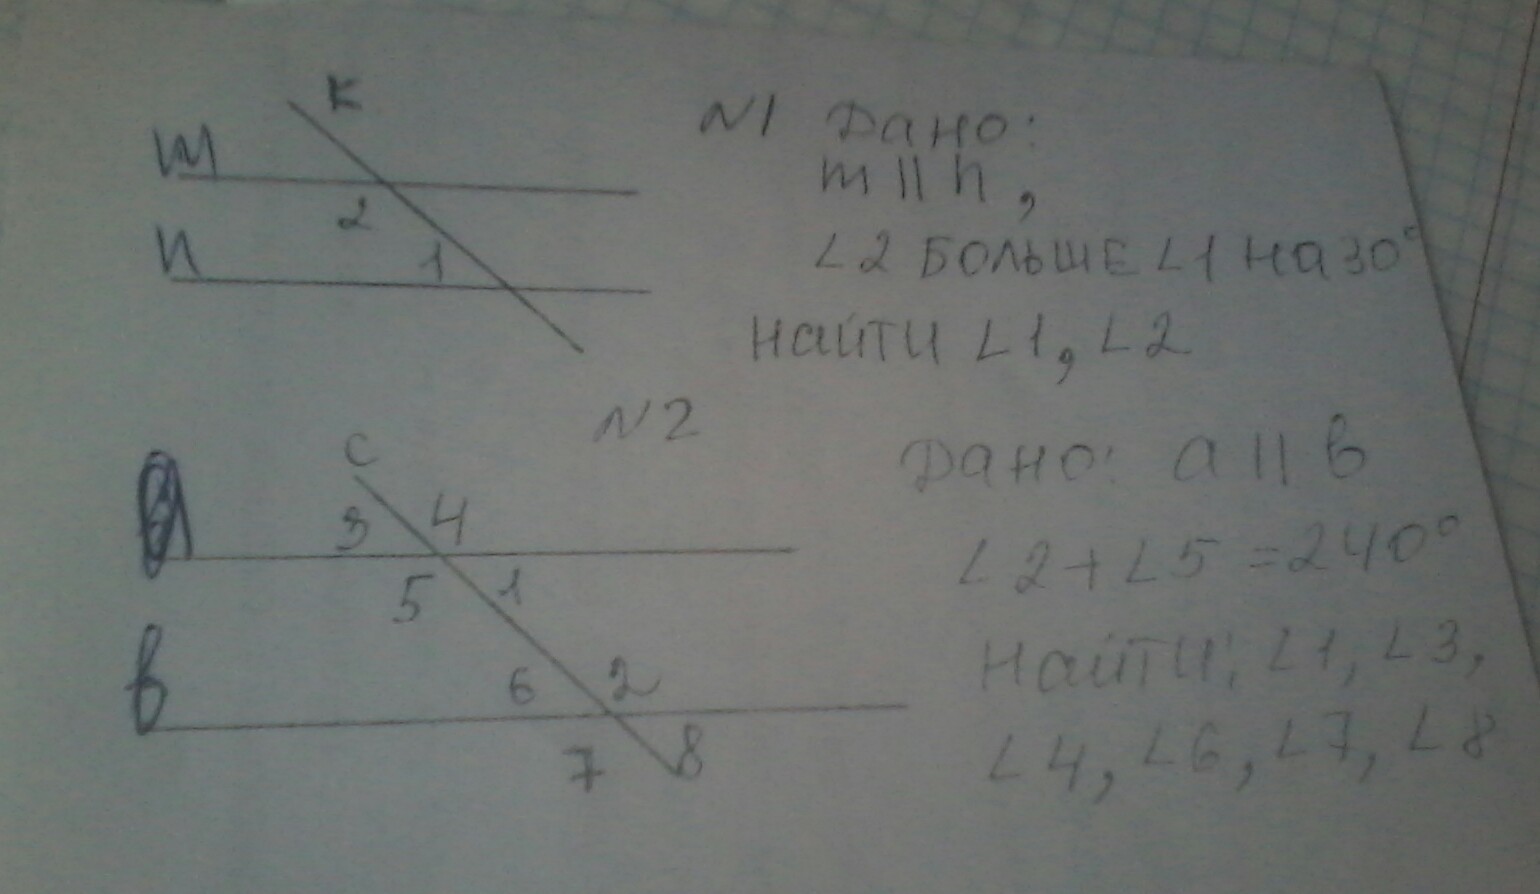 K
m
2
n
1
N1 Дано:
m || n,
∠2 БОЛЬШЕ ∠1 на 30°
Найти ∠1, ∠2
N2
c
a
3 4
5 1
в
6 2
7 8
Дано: a || в
∠2+∠5=240°
Найти: ∠1, ∠3,
∠4, ∠6, ∠7, ∠8